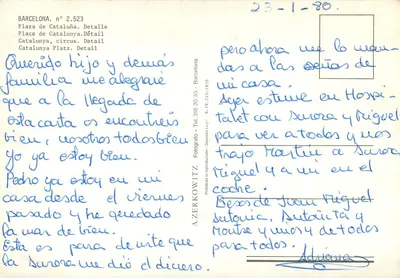 BARCELONA. nº 2.523
Plaza de Cataluña. Detalle
Place de Catalunya. Détail
Catalunya, circus. Detail
Catalunya Platz. Detail
Querido hijo y demás
familia me alegraré
que a la llegada de
esta carta os encontréis
bien, nosotros todos bien
yo ya estoy bien.
Pedro ya estoy en mi
casa desde el viernes
pasado y he quedado
la mar de bien.
Esta es para decirte que
la Aurora me dió el dinero.
A. ZERKOWITZ - Fotógrafo - Barcelona
23-1-80.
pero ahora me lo man-
das a las señas de
mi casa.
Ayer estuve en Hospi-
talet con Aurora y Miguel
para ver a todos y nos
trajo Martín a Aurora
Miguel y a mi en el
coche.
Besos de Juan Miguel
Antonia, y
Montse y mos y de todos
para todos.
Adriana